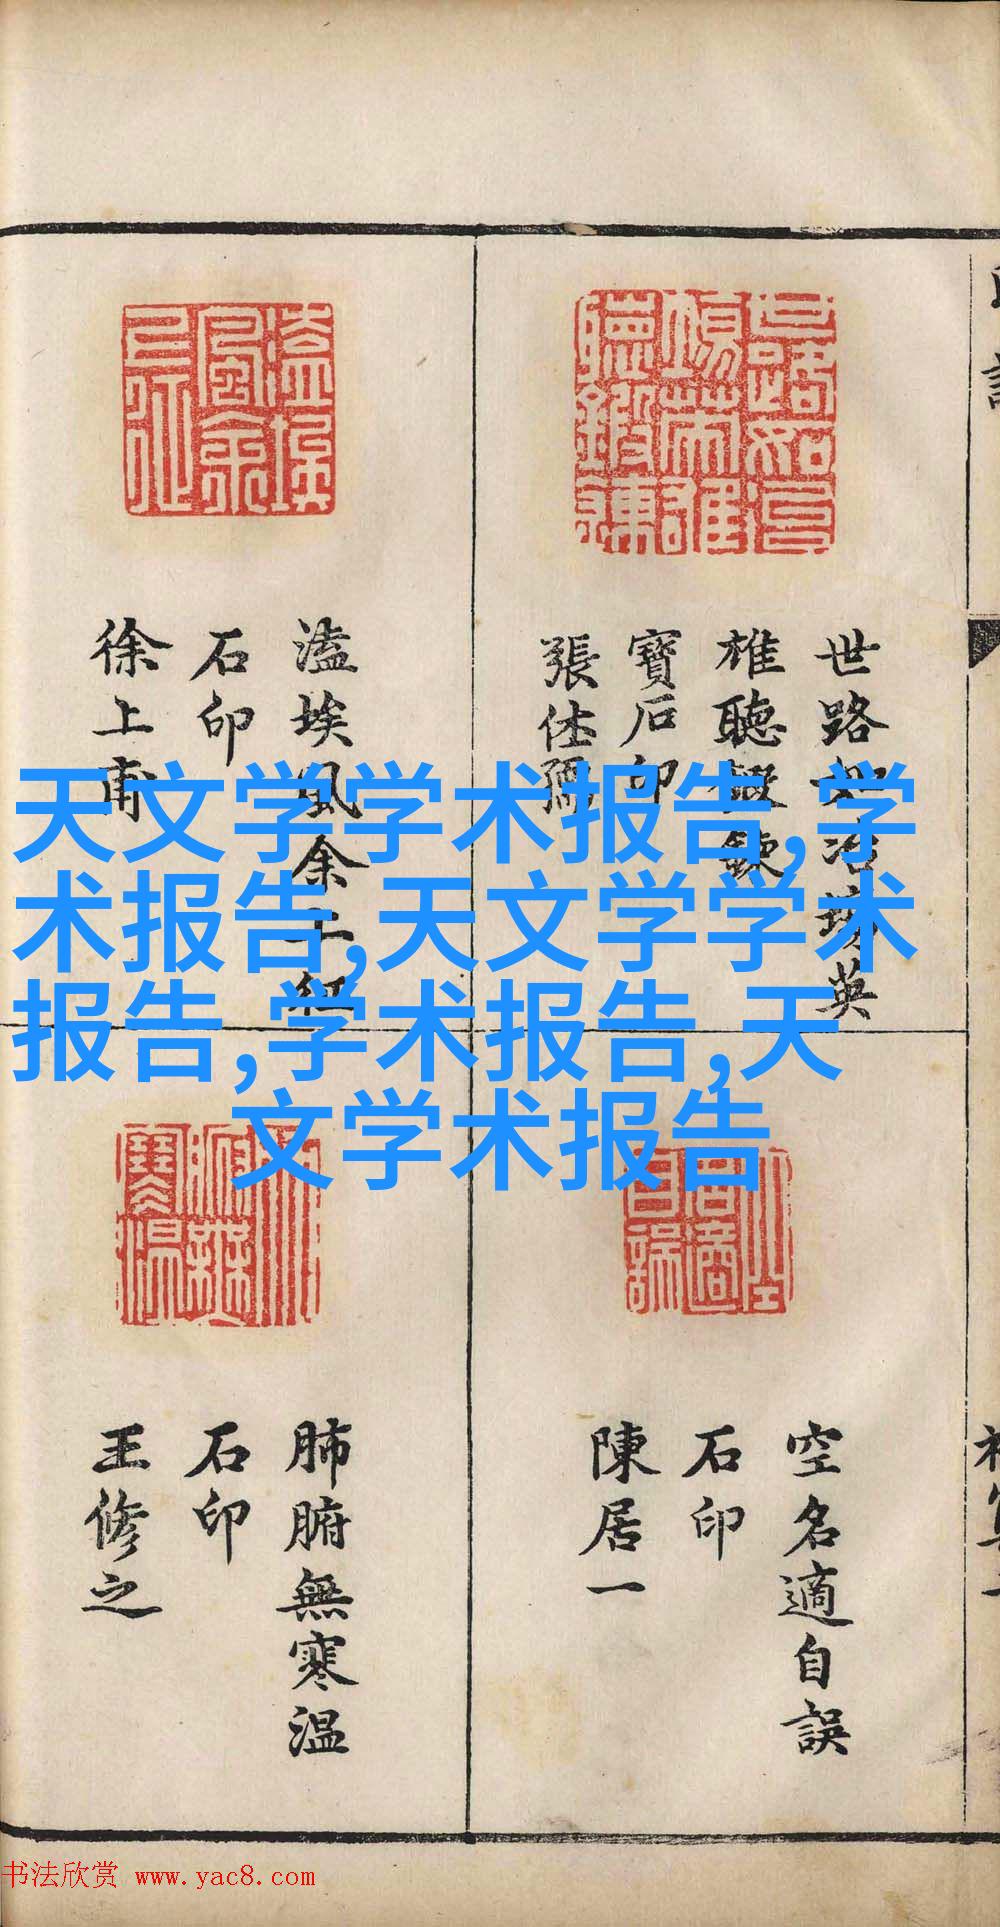 天文学学术报告,学
术报告,天文学学术
报告,学术报告,天
文学术报告
世路如冶坊英
雄聽鍛鍊
寶石印
張仕
溘埃風余上征
石印
徐上甫
空名適自誤
石印
陳居一
肺腑無寒温
石印
王修之
书法欣赏 www.yac8.com